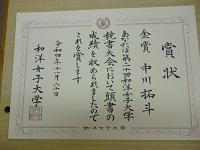 賞状
金賞 中川拓斗
あなたは第二十回和洋女子大学
競書大会において頭書の
成績を収められましたので
これを賞します
令和四年十一月二十日
和洋女子大学
和洋女子大学